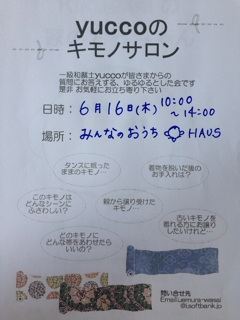 yuccoの
キモノサロン
一級和裁士yuccoが皆さまからの
質問にお答えする、ゆるゆるとした会です
是非 お気軽にお立ち寄り下さい
日時：6月16日(木) 10:00
～14:00
場所：みんなのおうち HAUS
タンスに眠った
ままのキモノ…
着物を脱いだ後の
お手入れは？
このキモノは
どんなシーンに
ふさわしい？
親から譲り受けた
キモノ…
古いキモノを
着れる方にお譲り
したいけれど…
どのキモノに
どんな帯をあわせたら
いいの？
問い合せ先